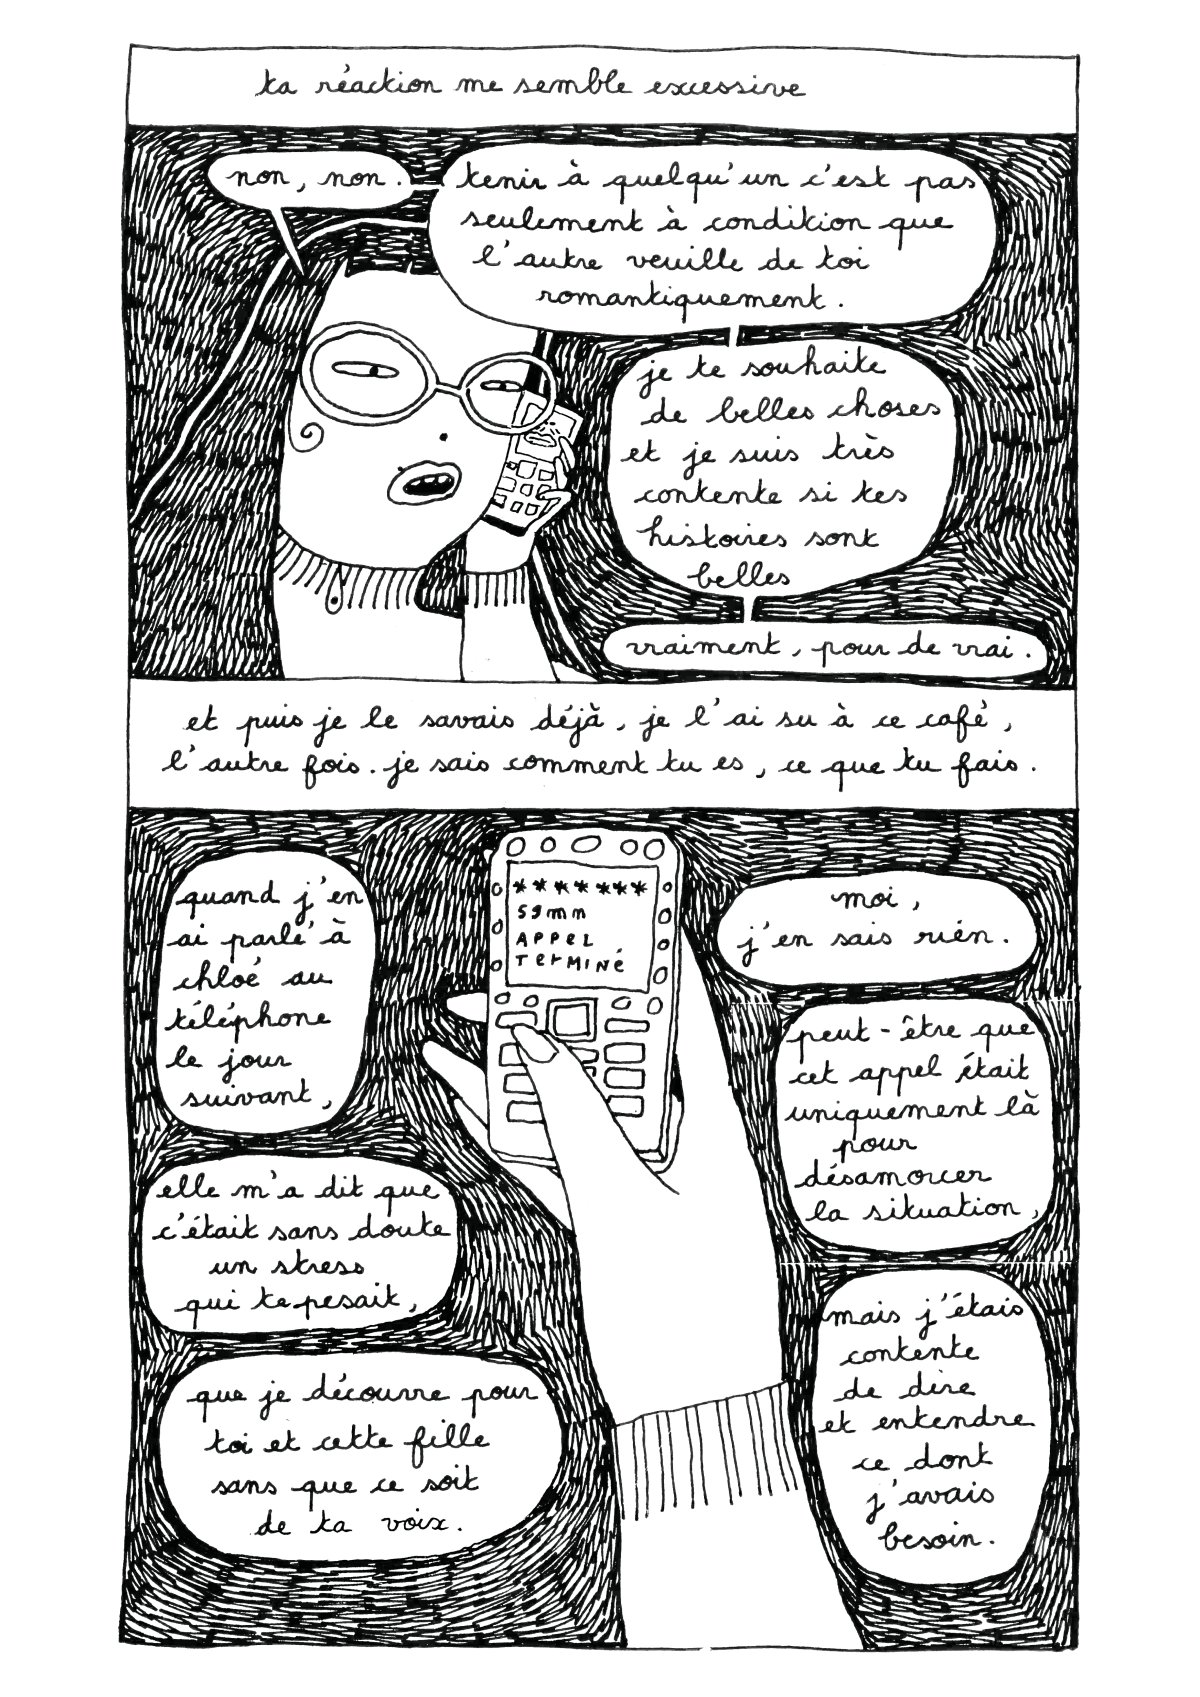 ta réaction me semble excessive
non, non.
tenir à quelqu'un c'est pas
seulement à condition que
l'autre veuille de toi
romantiquement.
je te souhaite
de belles choses
et je suis très
contente si tes
histoires sont
belles
vraiment, pour de vrai.
et puis je le savais déjà, je l'ai su à ce café,
l'autre fois. je sais comment tu es, ce que tu fais.
quand j'en
ai parlé à
chloé au
téléphone
le jour
suivant,
elle m'a dit que
c'était sans doute
un stress
qui te pesait,
que je découvre pour
toi et cette fille
sans que ce soit
de ta voix.
*******
59mn
APPEL
TERMINÉ
moi,
j'en sais rien.
peut-être que
cet appel était
uniquement là
pour
désamorcer
la situation,
mais j'étais
contente
de dire
et entendre
ce dont
j'avais
besoin.